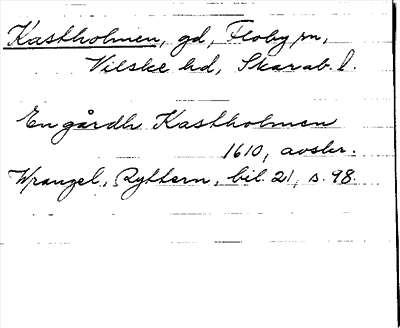 Kastholmen, gd, Floby sn,
Vilske hd, Skarab. l.
En gårdh Kastholmen
1610, avskr.
Wrangel, Ryttern, bil. 21, s. 98.